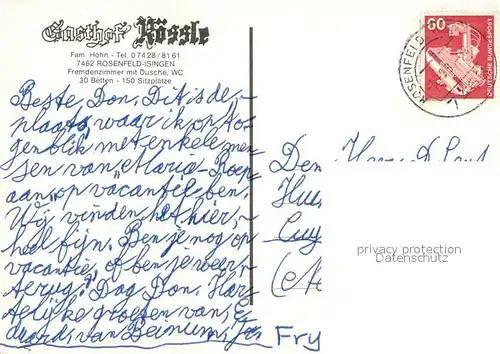 Gasthof Rössle
Fam. Höhn - Tel. 07428/8161
7462 ROSENFELD-ISINGEN
Fremdenzimmer mit Dusche, WC
30 Betten - 150 Sitzplätze
60
DEUTSCHE BUNDESPOST
ROSENFELD
Beste Don, Dit is de
plaats waar ik op 't o-
genblik met enkele men-
sen van "Maria-Roep
aan" op vacantie ben.
Wij vinden het hier,
heel fijn. Ben je nog op
vacantie, of ben je weer
terug? Dag Don, Har-
telijke groeten van,
van Beinum,
Den Heer
Fry
privacy protection
Datenschutz